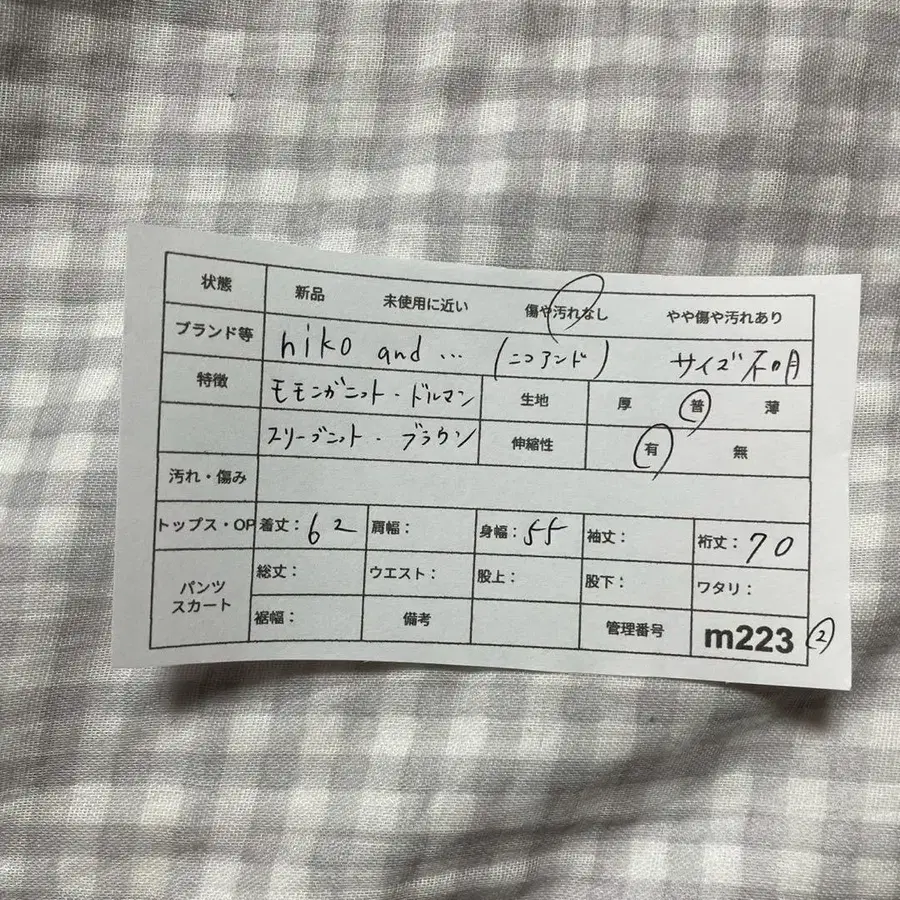 状態 新品 未使用に近い 傷や汚れなし やや傷や汚れあり
ブランド等 niko and ... (ニコアンド) サイズ不明
特徴 モモンガニット・ドルマン 生地 厚 普 薄
スリーブニット・ブラウン 伸縮性 有 無
汚れ・傷み
トップス・OP 着丈：62 肩幅： 身幅：55 袖丈： 裄丈：70
パンツ スカート 総丈： ウエスト： 股上： 股下： ワタリ：
裾幅： 備考 管理番号 m223 ②